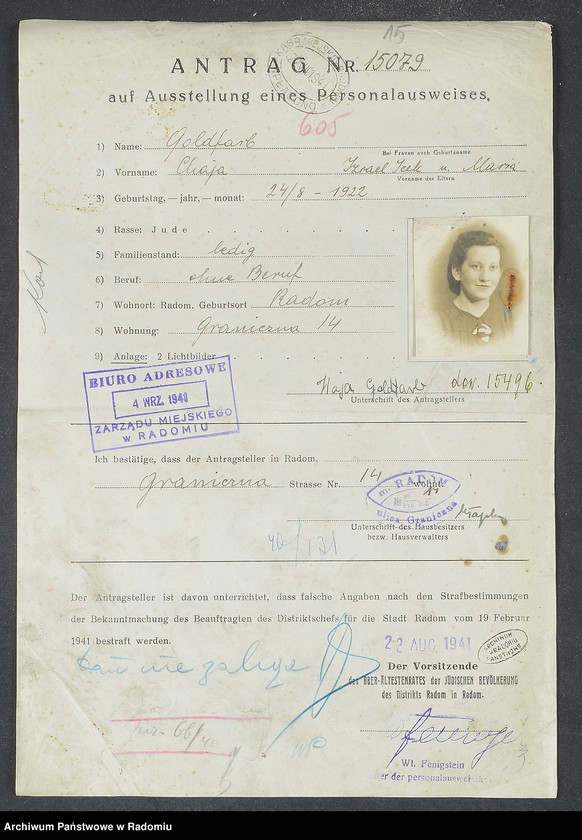 15
ANTRAG Nr. 15079
auf Ausstellung eines Personalausweises.
605
1) Name: Goldfarb
Bei Frauen auch Geburtsname
2) Vorname: Chaja Izrael Icek u. Maria
Vorname der Eltern
3) Geburtstag, — jahr, — monat: 24/8 - 1922
4) Rasse: Jude
5) Familienstand: ledig
6) Beruf: ohne Beruf
7) Wohnort: Radom, Geburtsort Radom
8) Wohnung: Graniczna 14
9) Anlage: 2 Lichtbilder
Goldfarb dow. 15496.
Unterschrift des Antragstellers
BIURO ADRESOWE
4 WRZ. 1941
ZARZĄDU MIEJSKIEGO
w RADOMIU
Ich bestätige, dass der Antragsteller in Radom,
Graniczna Strasse Nr. 14 wohnt.
m. RADOM
14
ulica Graniczna
Unterschrift des Hausbesitzers
bezw. Hausverwalters
40/131
Der Antragsteller ist davon unterrichtet, dass falsche Angaben nach den Strafbestimmungen
der Bekanntmachung des Beauftragten des Distriktschefs für die Stadt Radom vom 19 Februar
1941 bestraft werden.
22 AUG. 1941
ARCHIWUM
PAŃSTWOWE
w RADOMIU
Der Vorsitzende
des OBER-ÄLTESTENRATES der JÜDISCHEN BEVÖLKERUNG
des Distrikts Radom in Radom.
Wł. Fenigstein
er der personalausweis
Archiwum Państwowe w Radomiu